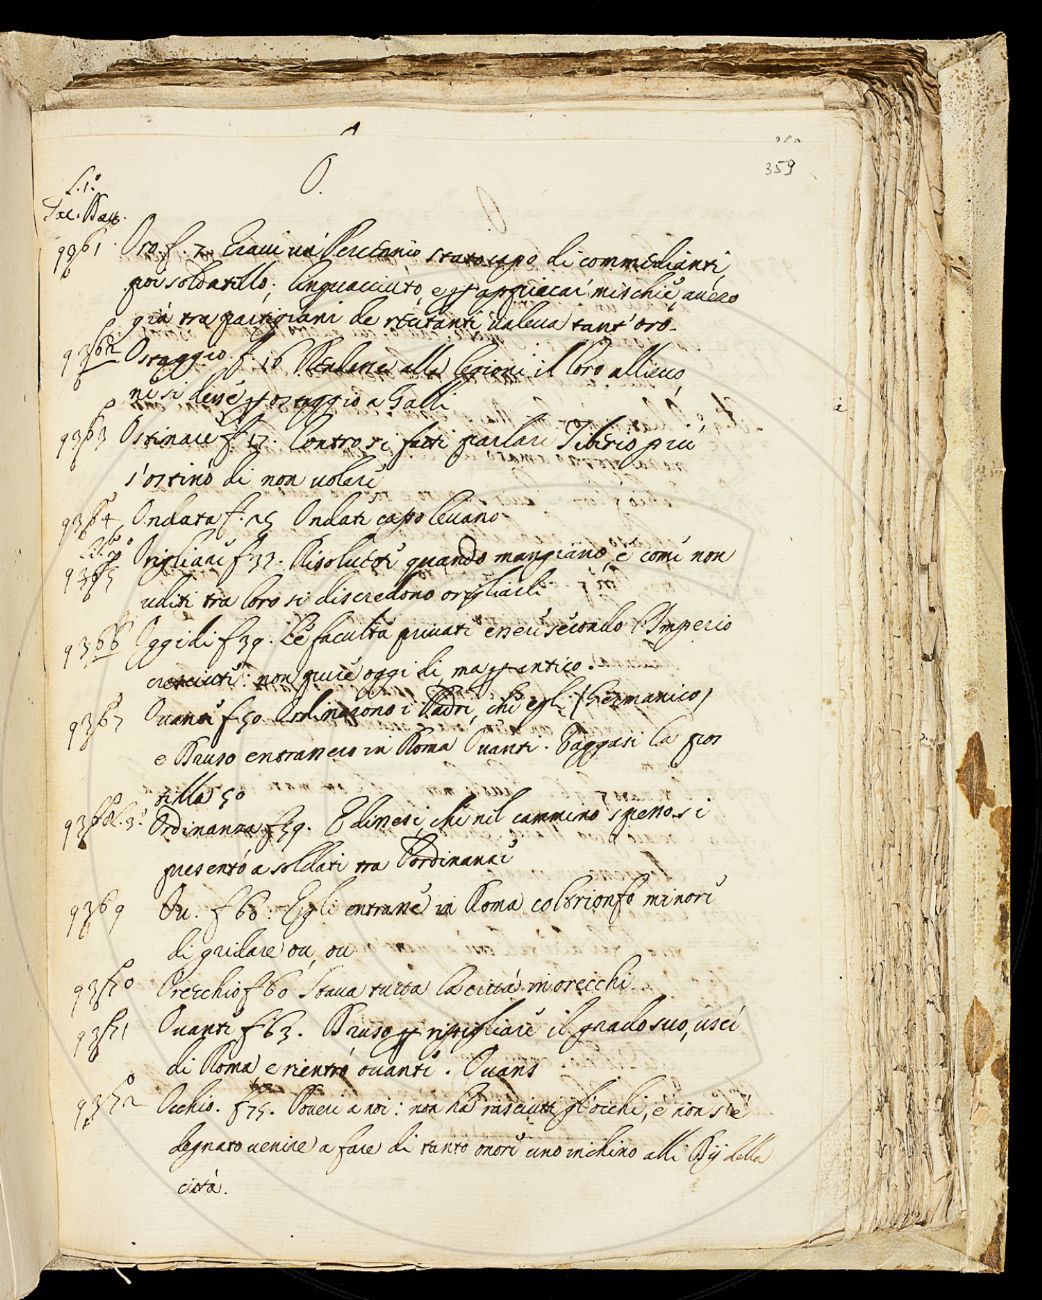 O.
359
L. 1.º
Tac. Dav.
9361 Oro f. 7. Eravi un Percennio stato capo di commedianti,
poi soldatello, linguacciuto, e p appiccar mischie, avezo
già tra partigiani de recitanti valeva tant' oro.
9362 Ostaggio. f. 16 alle legioni il loro allievo,
ne si desse p ostaggio a Galli
9363 Ostinare f. 17. Contro sì fatti parlari Tiberio più
s'ostinò di non volere
9364 Ondata f. 25 Ondati capolevano
9365 Origliare f. 37. Risoluti quando mangiano, e come non
uditi tra loro si discredono origliarli
9366 Oggidi f. 39. Le facultà private essersi secondo l'Imperio
cresciute: non pure oggi dì ma p antico.
9367 Ovante f. 50. Ordinarono i Padri, che egli (Germanico)
e Druso entrassero in Roma Ovanti. Vaggasi la pos
tilla 50
9368 L. 3.º Ordinanza f. 59. E dimesi, che nel cammino spesso si
presentò a soldati tra l'ordinanze
9369 Ou. f. 60. Egli entrasse in Roma col trionfo minore
di gridare ou, ou
9370 Orecchio f. 60 Stava tutta la città in orecchi
9371 Ovanti f. 63. Druso p ripigliare il grado suo, uscì
di Roma e rientrò ovante. Ovans
9372 Occhio. f. 75. Poveri a noi: non ha rasciutti gl'occhi, e non s'è
degnato venire a fare di tanto onore uno inchino alli Dij della
città.